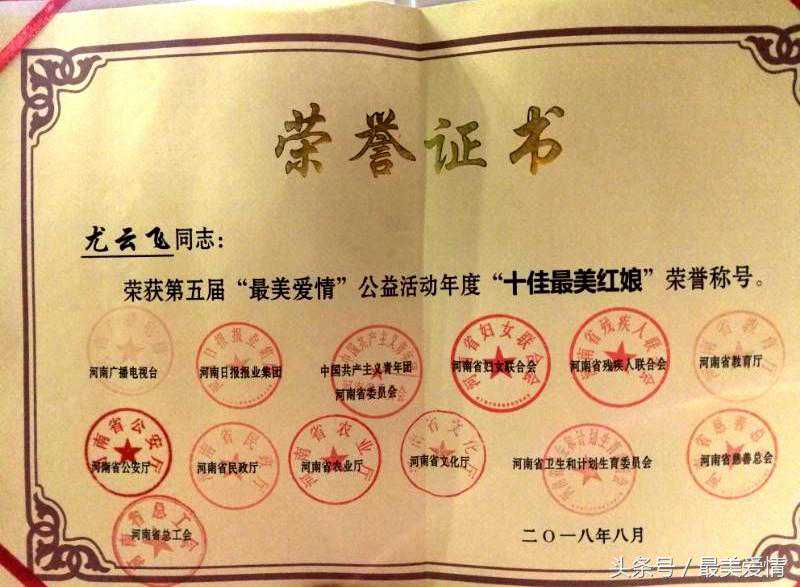 荣誉证书
尤云飞同志：
荣获第五届“最美爱情”公益活动年度“十佳最美红娘”荣誉称号。
河南广播电视台 河南日报报业集团 中国共产主义青年团 河南省妇女联合会 河南省残疾人联合会 河南省教育厅
河南省委员会
河南省公安厅 河南省民政厅 河南省农业厅 河南省文化厅 河南省卫生和计划生育委员会 河南省慈善总会
河南省总工会
二〇一八年八月
头条号 / 最美爱情